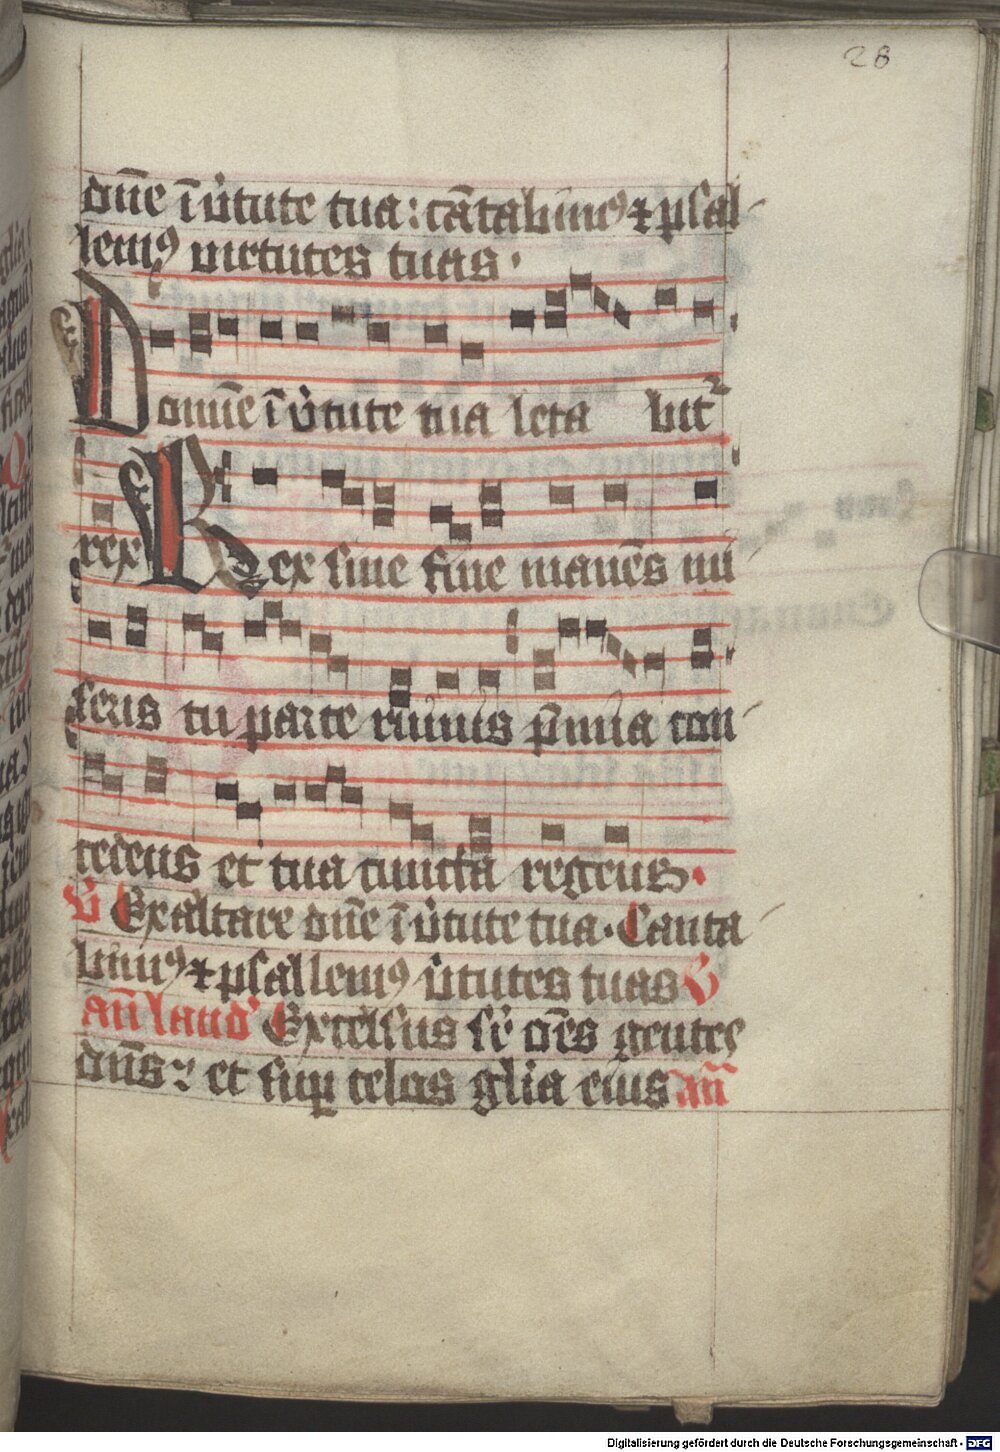 28
dn̄e ī v̓tute tua: cātabim⁹ ⁊ psal
lem⁹ virtutes tuas.
Domīe ī v̓tute tua leta bit᷑
rex Rex sine fine manēs mi
seris tu parce ruinis p̄mia con
cedens et tua cuncta regens.
V Exaltare dn̄e ī v̓tute tua. Canta
bim⁹ ⁊ psallem⁹ v̓tutes tuas V
an̄ laud' Excelsus sr̄ om̄s gentes
dn̄s: et sup celos glia eius an̄
Digitalisierung gefördert durch die Deutsche Forschungsgemeinschaft - DFG